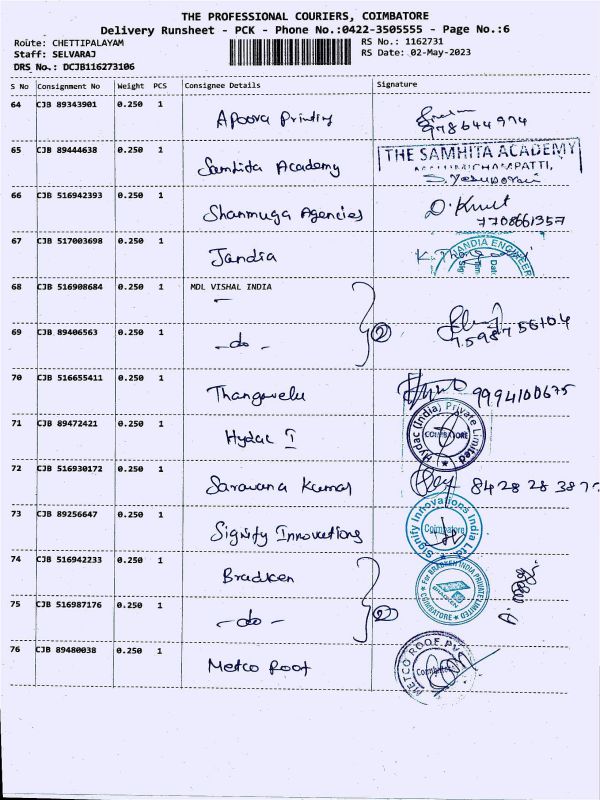 THE PROFESSIONAL COURIERS, COIMBATORE
Delivery Runsheet - PCK - Phone No.:0422-3505555 - Page No.:6
Route: CHETTIPALAYAM RS No.: 1162731
Staff: SELVARAJ RS Date: 02-May-2023
DRS No.: DCJB116273106
S No Consignment No Weight PCS Consignee Details Signature
64 CJB 89343901 0.250 1 Apoorva Printing
65 CJB 89444638 0.250 1 Samhita Academy THE SAMHITA ACADEMY
66 CJB 516942393 0.250 1 Shanmuga Agencies 7708661357
67 CJB 517003698 0.250 1 Jandia JANDIA ENGINEER
68 CJB 516908684 0.250 1 MDL VISHAL INDIA
69 CJB 89406563 0.250 1 -do- 2 7598756104
70 CJB 516655411 0.250 1 Thangavelu 9994100675
71 CJB 89472421 0.250 1 Hydac I Hydac (India) Private Limited COIMBATORE
72 CJB 516930172 0.250 1 Saravana Kumar
73 CJB 89256647 0.250 1 Signify Innovations Signify Innovations India Ltd Coimbatore
74 CJB 516942233 0.250 1 Bradken For BRADKEN INDIA PRIVATE LIMITED BRADKEN COIMBATORE
75 CJB 516987176 0.250 1 -do- 2
76 CJB 89480038 0.250 1 Metco Roof METCO ROOF PV Coimbatore